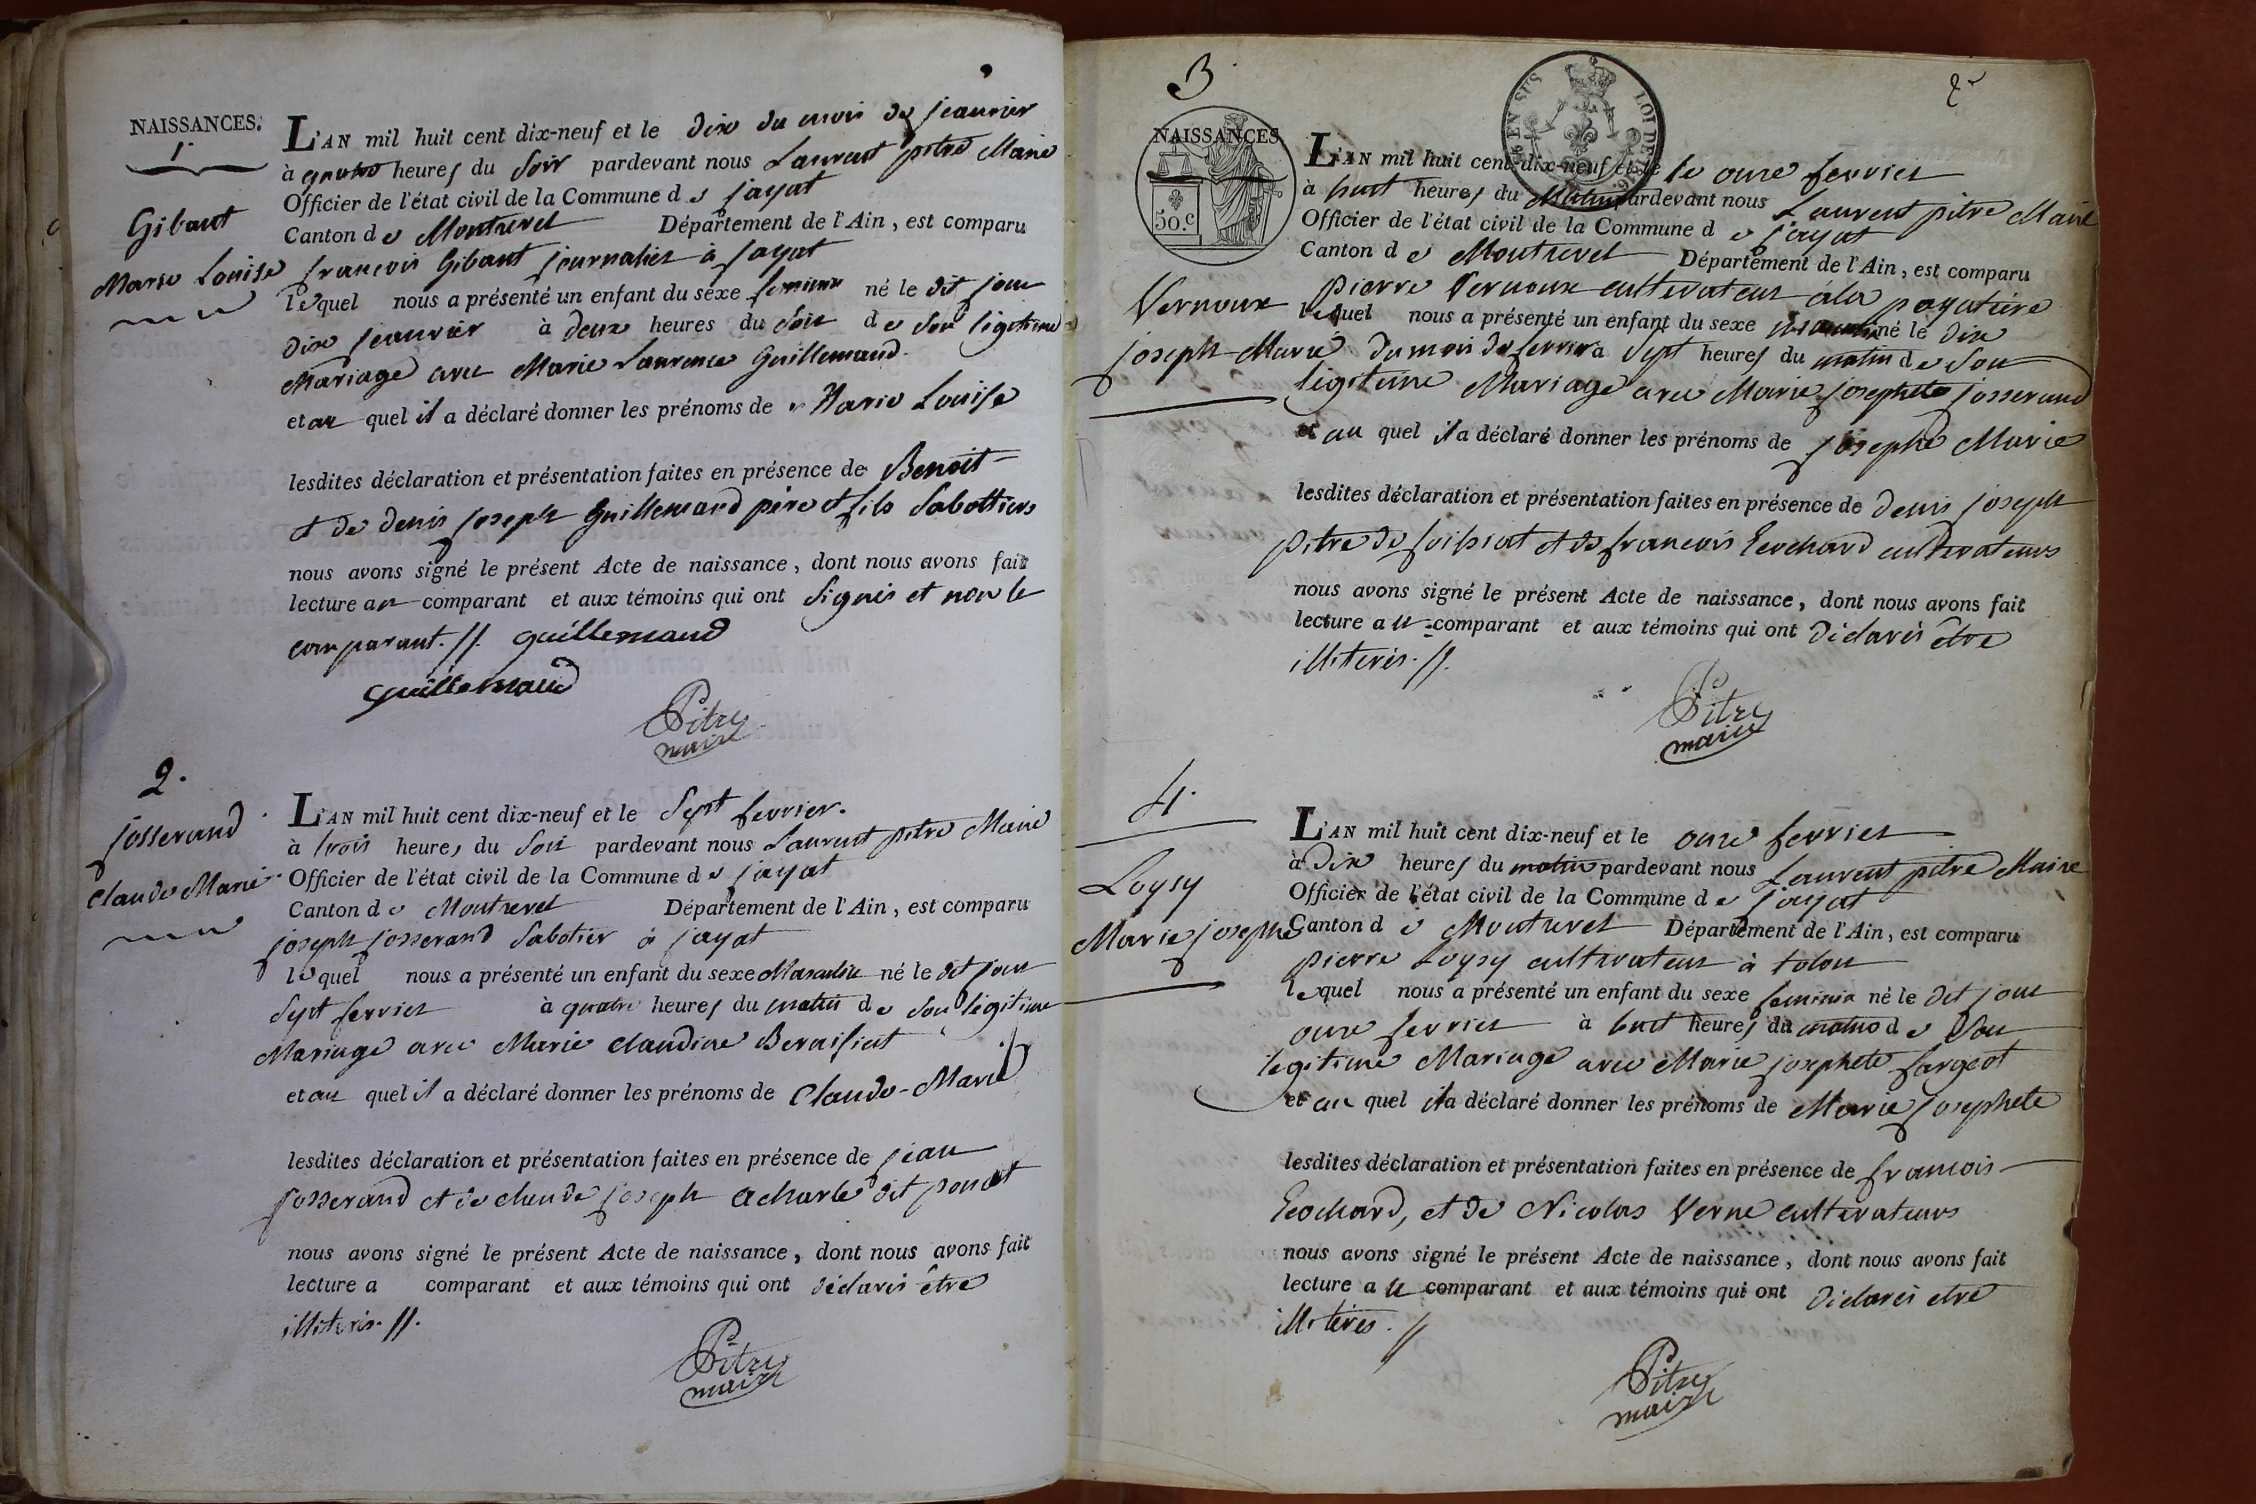 NAISSANCES.
1.
Gibaut
Marie Louise
L'AN mil huit cent dix-neuf et le dix du mois de jeanvier
à quatre heures du soir pardevant nous Laurent pitre Maire
Officier de l'état civil de la Commune de jayat
Canton de Montrevel Département de l'Ain, est comparu
françois Gibaut journalier à jayat
lequel nous a présenté un enfant du sexe feminin né le dit jour
dix jeanvier à deux heures du soir de son légitime
Mariage avec Marie Laurence Guillemaud.
et au quel il a déclaré donner les prénoms de Marie Louise
lesdites déclaration et présentation faites en présence de Benoit
et de denis joseph Guillemaud père et fils Sabottiers
nous avons signé le présent Acte de naissance, dont nous avons fait
lecture au comparant et aux témoins qui ont signés et non le
comparant. //. guillemaud
guillemaud
Pitre
maire
2.
josserand
Claude Marie
L'AN mil huit cent dix-neuf et le Sept fevrier.
à trois heures du soir pardevant nous Laurent pitre Maire
Officier de l'état civil de la Commune de jayat
Canton de Montrevel Département de l'Ain, est comparu
joseph josserand Sabotier à jayat
lequel nous a présenté un enfant du sexe Masculin né le dit jour
Sept fevrier à quatre heures du matin de son légitime
Mariage avec Marie claudine Beraisiat
et au quel il a déclaré donner les prénoms de Claude-Marie
lesdites déclaration et présentation faites en présence de jean
josserand et de claude joseph acharle dit poncet
nous avons signé le présent Acte de naissance, dont nous avons fait
lecture a comparant et aux témoins qui ont déclarés être
illiterés. //.
Pitre
maire
3
2e
NAISSANCES
50.c
EN SUS
LOI DE
Vernoux
joseph-Marie
L'AN mil huit cent dix-neuf et le le onze fevrier
à huit heures du Matin pardevant nous Laurent pitre Maire
Officier de l'état civil de la Commune de jayat
Canton de Montrevel Département de l'Ain, est comparu
pierre Vernoux cultivateur à la payatiere
lequel nous a présenté un enfant du sexe masculin né le dix
du mois de fevrier à Sept heures du matin de Son
légitime Mariage avec Marie josephete josserand
et au quel il a déclaré donner les prénoms de josephe Marie
lesdites déclaration et présentation faites en présence de denis joseph
pitre de foissiat et de françois Eochard cultivateurs
nous avons signé le présent Acte de naissance, dont nous avons fait
lecture au comparant et aux témoins qui ont déclarés être
illiterés. //.
Pitre
maire
4.
Loysy
Marie josephe
L'AN mil huit cent dix-neuf et le onze fevrier
à Dix heures du matin pardevant nous Laurent pitre Maire
Officier de l'état civil de la Commune de jayat
Canton de Montrevel Département de l'Ain, est comparu
pierre Loysy cultivateur à tolon
lequel nous a présenté un enfant du sexe feminin né le dit jour
onze fevrier à huit heures du matin de Son
legitime Mariage avec Marie josephete fargeot
et au quel il a déclaré donner les prénoms de Marie josephete
lesdites déclaration et présentation faites en présence de françois
Eochard, et de Nicolas Verne cultivateurs
nous avons signé le présent Acte de naissance, dont nous avons fait
lecture au comparant et aux témoins qui ont déclarés etre
illitérés. //
Pitre
maire